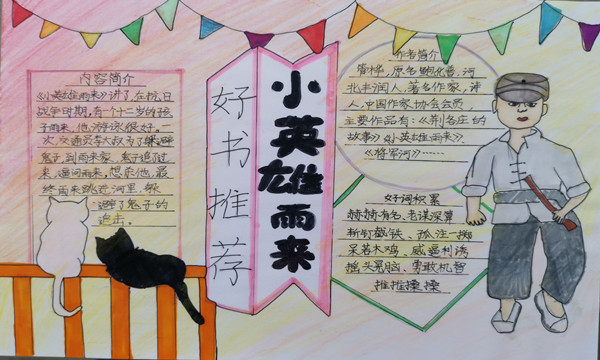 内容简介
《小英雄雨来》讲了,在抗日
战争时期,有个十二岁的孩
子雨来,他游泳很好。一
次,交通员李大叔为了躲避
鬼子,到雨来家,鬼子追了过
来,逼问雨来,想杀他,最
终雨来跳进河里,躲
避了鬼子的
追击。
好书推荐
小英雄雨来
作者简介
管桦,原名鲍化普,河
北丰润人,著名作家,诗
人,中国作家协会会员,
主要作品有:《荆各庄的
故事》《小英雄雨来》、
《将军河》……
好词积累
赫赫有名、老谋深算
斩钉截铁、孤注一掷
呆若木鸡、威逼利诱
摇头晃脑、勇敢机智
推推搡搡